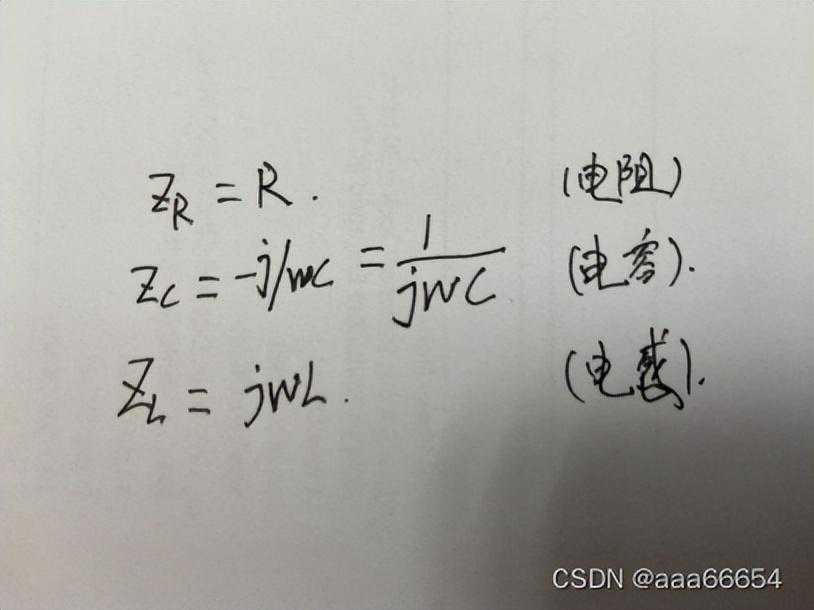 Z_R = R. (电阻)
Z_C = -j/wC = 1/jwC (电容).
Z_L = jwL. (电感).
CSDN @aaa66654